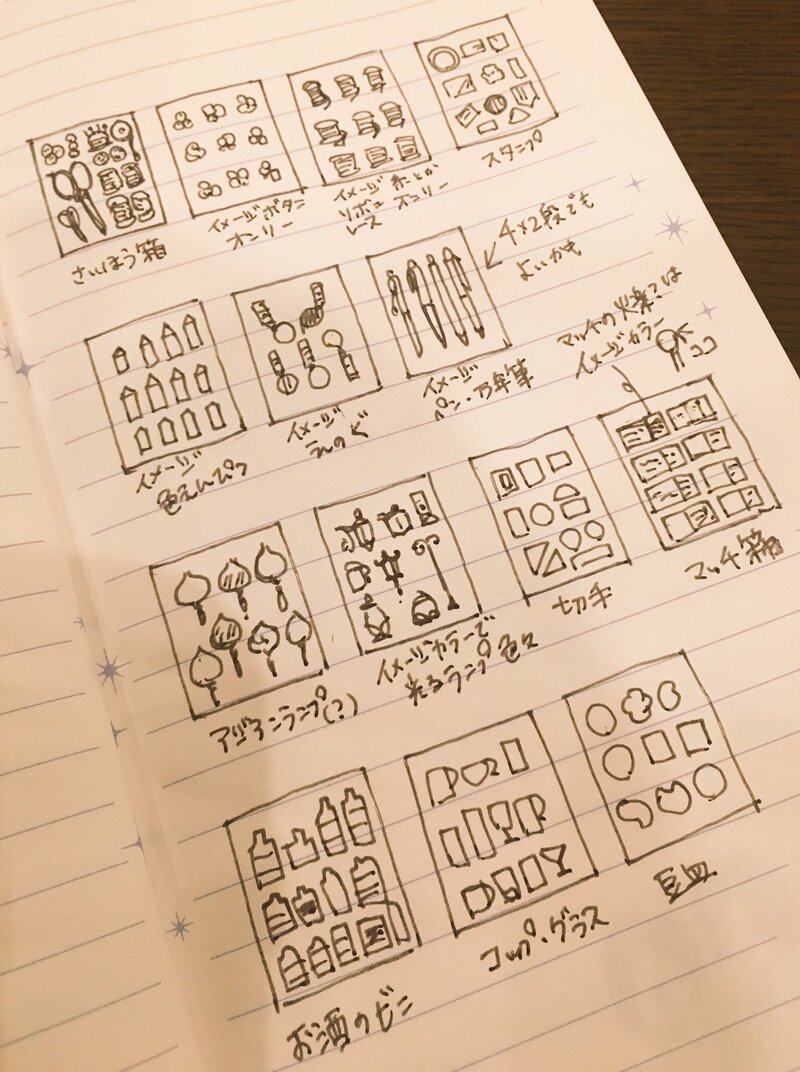 さいほう箱
イメージボタン
オンリー
イメージ 糸とか
リボン オンリー
レース
スタンプ
イメージ
色えんぴつ
イメージ
えのぐ
イメージ
ペン・万年筆
4×2段でも
よいかも
マッチの火薬?は
イメージカラー
ココ
アジアンランプ(?)
イメージカラーで
光るランプ色々
切手
マッチ箱
お酒のビン
コップ・グラス
豆皿